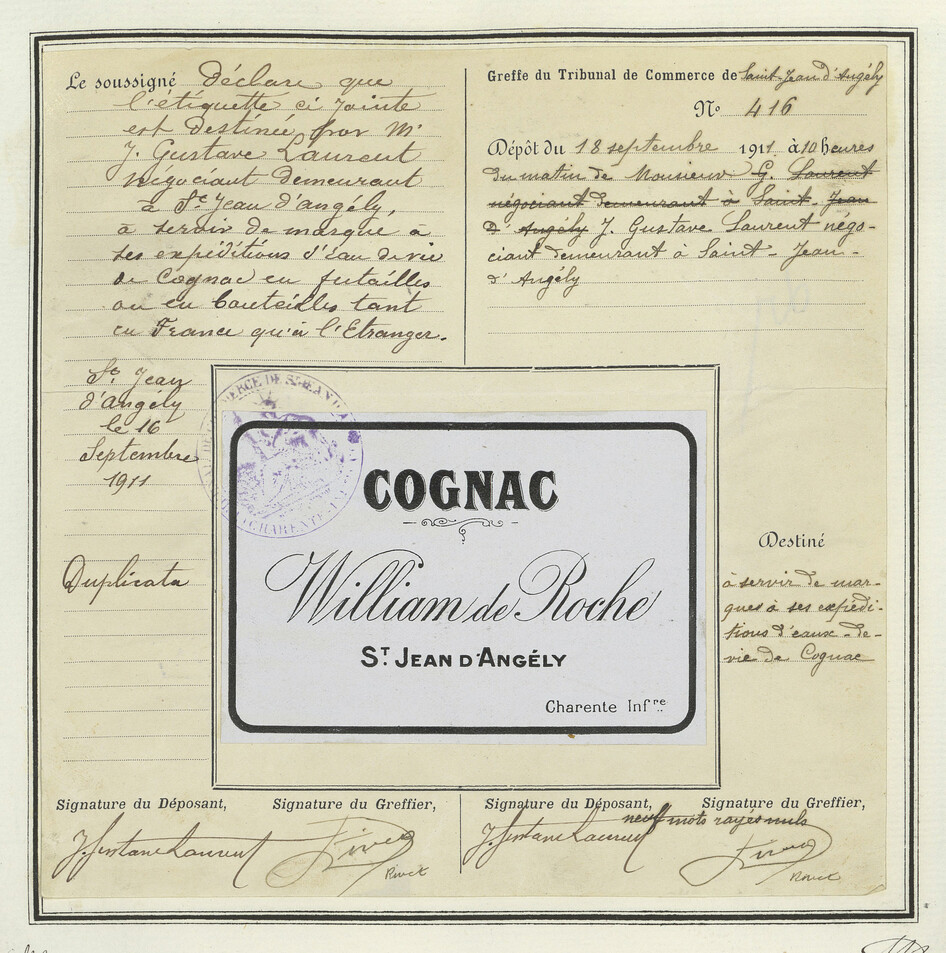 Le soussigné Déclare que
l'étiquette ci jointe
est Destinée, par Mr
J. Gustave Laurent
Négociant Demeurant
à St Jean d'angély,
à servir de marque à
ses expéditions d'Eau de vie
de Cognac en futailles
ou en bouteilles tant
en France qu'à l'Etranger.
St Jean
d'Angély
le 16
Septembre
1911
Duplicata
Greffe du Tribunal de Commerce de Saint-Jean d'Angély
No 416
Dépôt du 18 septembre 1911 à 10 heures
du matin de Monsieur G. Laurent
négociant demeurant à Saint-Jean
d'Angély J. Gustave Laurent négo-
ciant demeurant à Saint-Jean-
d'Angély
COGNAC
William de Roche
ST JEAN D'ANGÉLY
Charente Infre
Destiné
à servir de mar-
ques à ses expédi-
tions d'eaux-de-
vie de Cognac
Signature du Déposant, Signature du Greffier,
J. Gustave Laurent
Signature du Déposant, Signature du Greffier,
neuf mots rayés nuls
J. Gustave Laurent